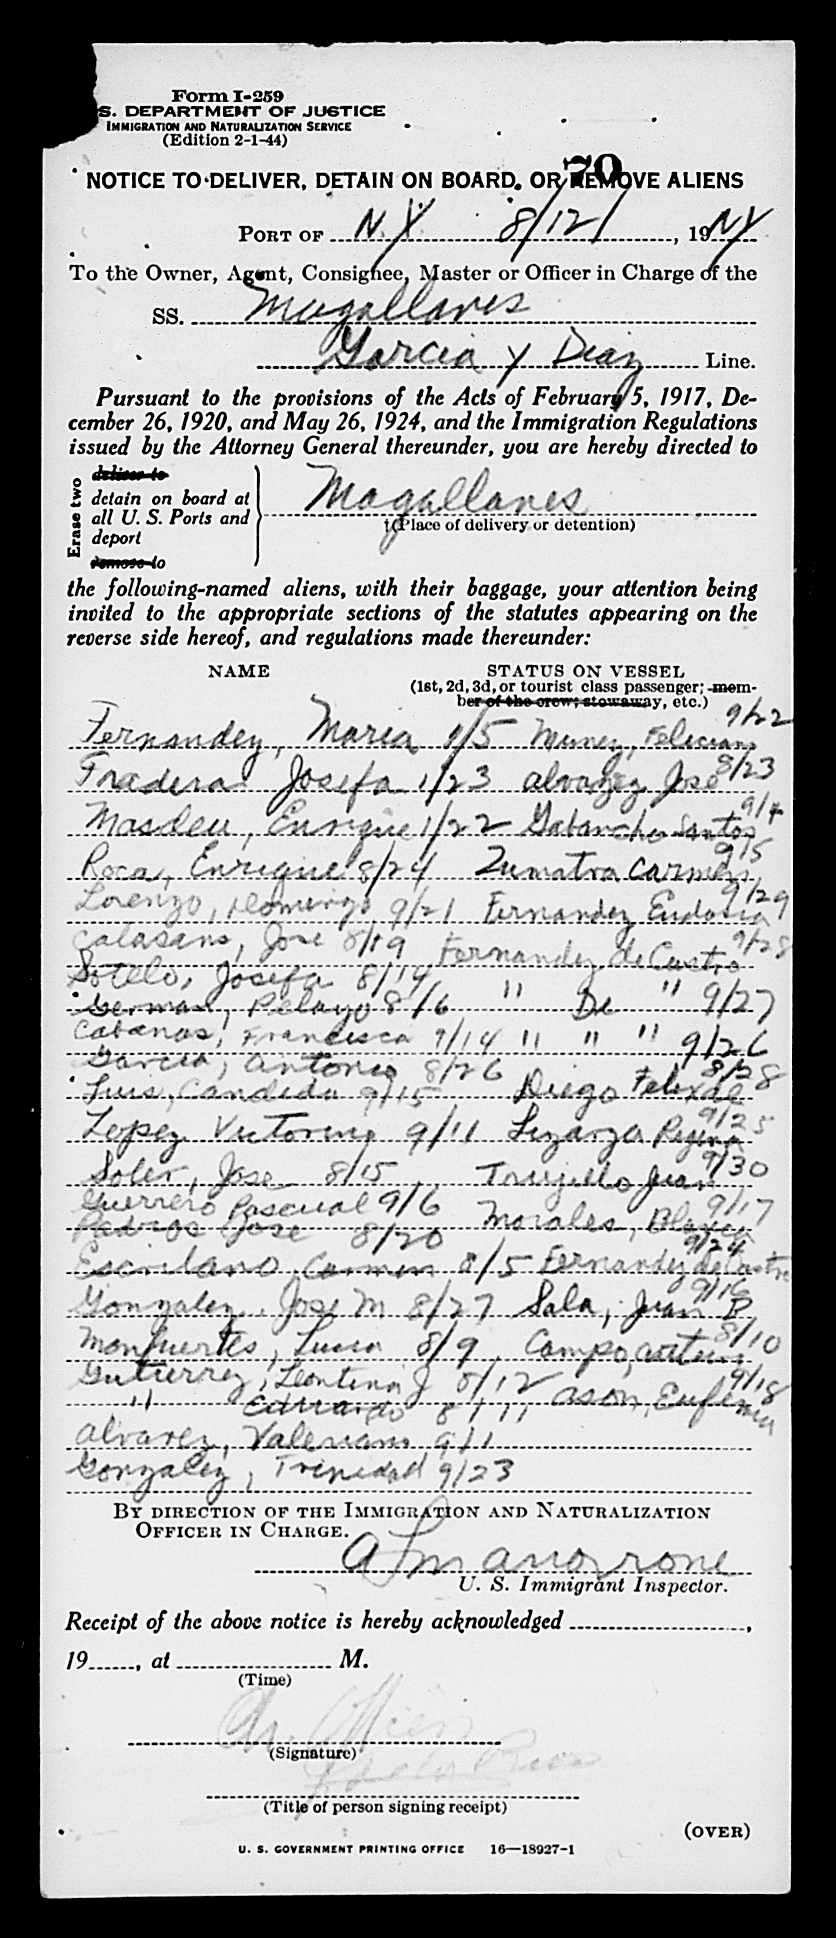 Form I-259
S. DEPARTMENT OF JUSTICE
IMMIGRATION AND NATURALIZATION SERVICE
(Edition 2-1-44)
70
NOTICE TO DELIVER, DETAIN ON BOARD, OR REMOVE ALIENS
PORT OF N.Y. 8/12/ , 19 NY
To the Owner, Agent, Consignee, Master or Officer in Charge of the
SS. Magallanes
Garcia y Diaz Line.
Pursuant to the provisions of the Acts of February 5, 1917, De-
cember 26, 1920, and May 26, 1924, and the Immigration Regulations
issued by the Attorney General thereunder, you are hereby directed to
Erase two
deliver to
detain on board at
all U. S. Ports and
deport
remove to
Magallanes
(Place of delivery or detention)
the following-named aliens, with their baggage, your attention being
invited to the appropriate sections of the statutes appearing on the
reverse side hereof, and regulations made thereunder:
NAME STATUS ON VESSEL
(1st, 2d, 3d, or tourist class passenger; mem-
ber of the crew; stowaway, etc.)
Fernandez, Maria 9/5 Munez, Feliciano 9/22
Fradera Josefa 1/23 Alvarez Jose 8/23
Masdeu, Enrique 1/22 Santos 9/4
Roca, Enrique 8/24 Zumatra Carmen 9/5
Lorenzo, Domingo 9/21 Fernandez Eudosia 9/29
Calasans, Jose 8/19 Fernandez de Castro 9/28
Sotelo, Josefa 8/14
German, Pelayo 8/6 " De " 9/27
Cabanas, Francisca 9/14 " " " 9/26
Garcia, Antonio 8/26
Luis, Candida 9/15 Diego Felix 8/28
Lopez Victorino 9/11 Lizarza Regina 9/25
Soler, Jose 8/15 Trujillo Juan 9/30
Guerrero Pascual 9/6 Morales, 9/17
Padros Jose 8/20
Escribano Carmen 8/5 Fernandez de Castro 9/24
Gonzalez, Jose M 8/27 Sala, Juan B 9/16
Monfuertes, Lucia 8/9 Campo, Arturo 8/10
Gutierrez, Leontina J 8/12 Ason, Eufemia 9/18
" Eduardo 8/11
Alvarez, Valeriano 9/1
Gonzalez, Trinidad 9/23
BY DIRECTION OF THE IMMIGRATION AND NATURALIZATION
OFFICER IN CHARGE.
U. S. Immigrant Inspector.
Receipt of the above notice is hereby acknowledged ,
19 , at M.
(Time)
(Signature)
(Title of person signing receipt)
(OVER)
U. S. GOVERNMENT PRINTING OFFICE 16—18927-1